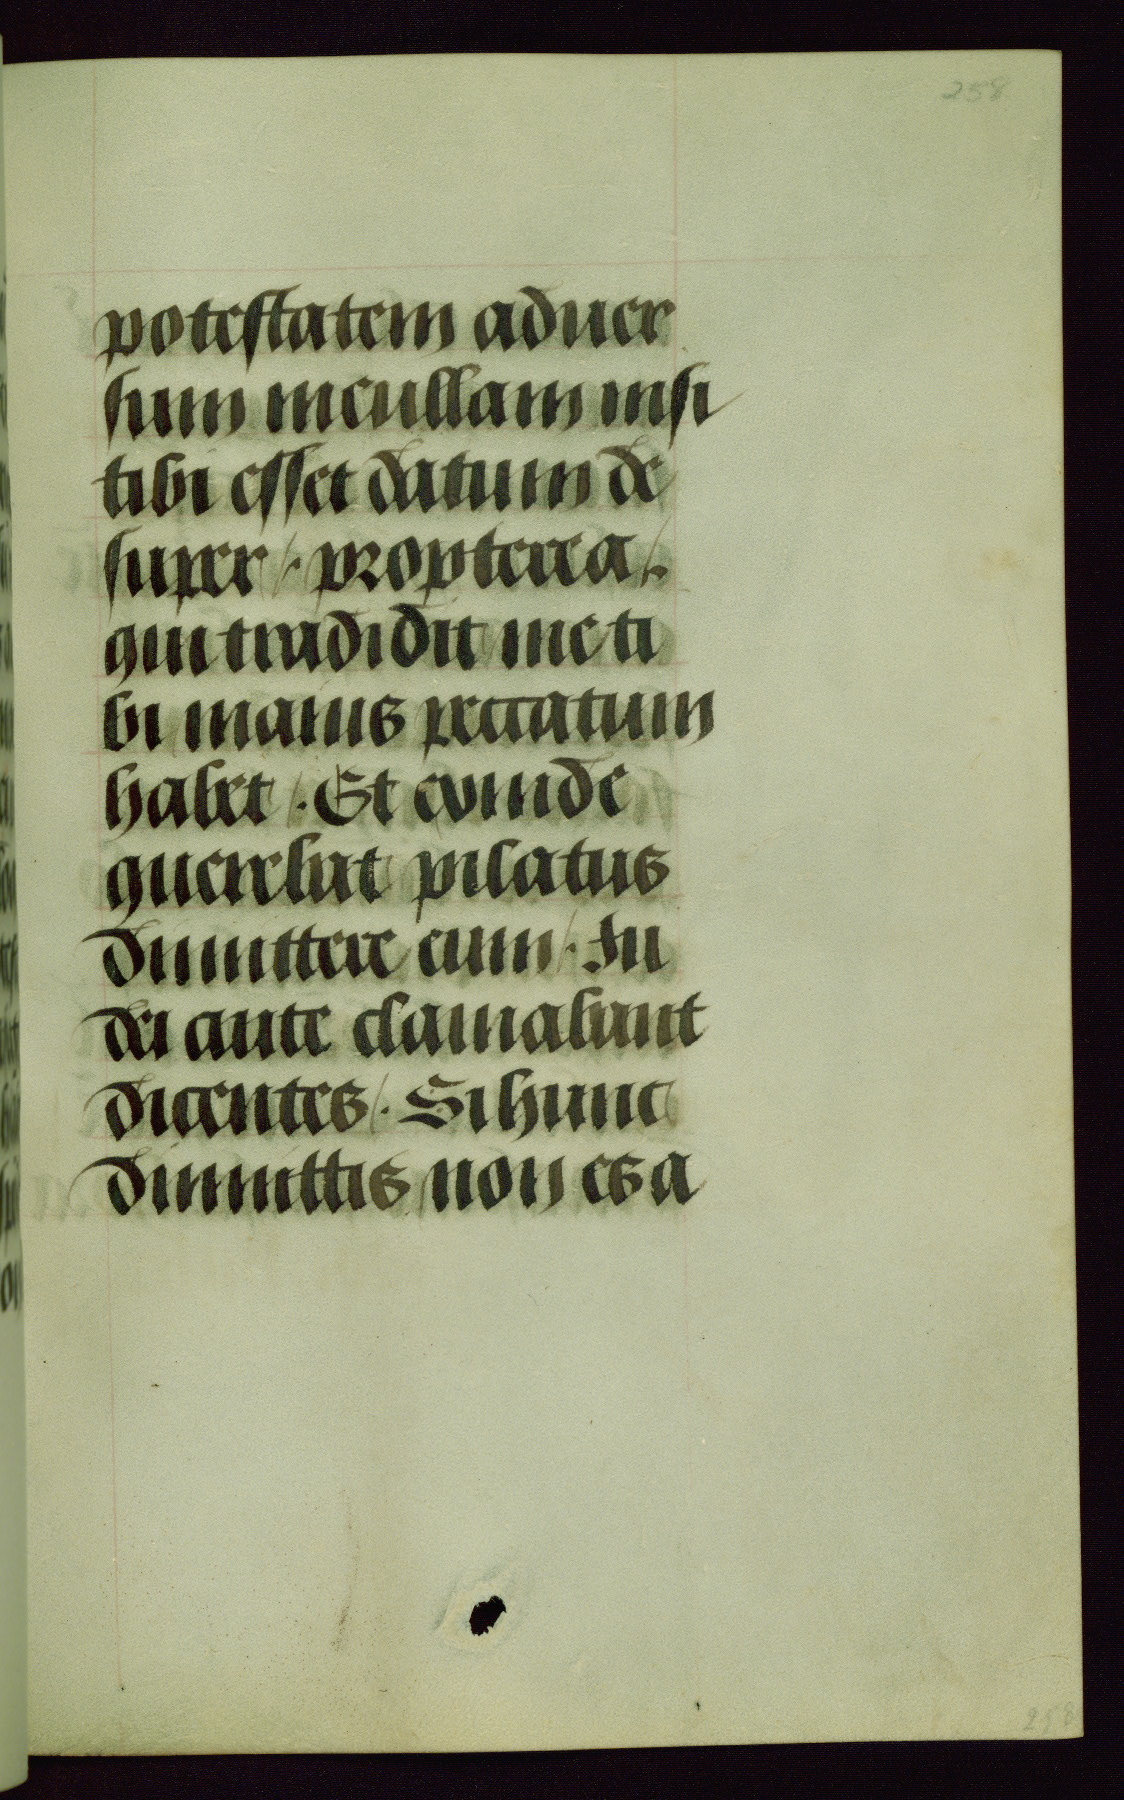 258
potestatem aduer
sum me ullam nisi
tibi esset datum de
super /. propterea /.
qui tradidit me ti
bi maius peccatum
habet /. Et exinde
querebat pilatus
dimittere eum /. Iu
dei autē clamabant
dicentes /. Si hunc
dimittis non es a
258